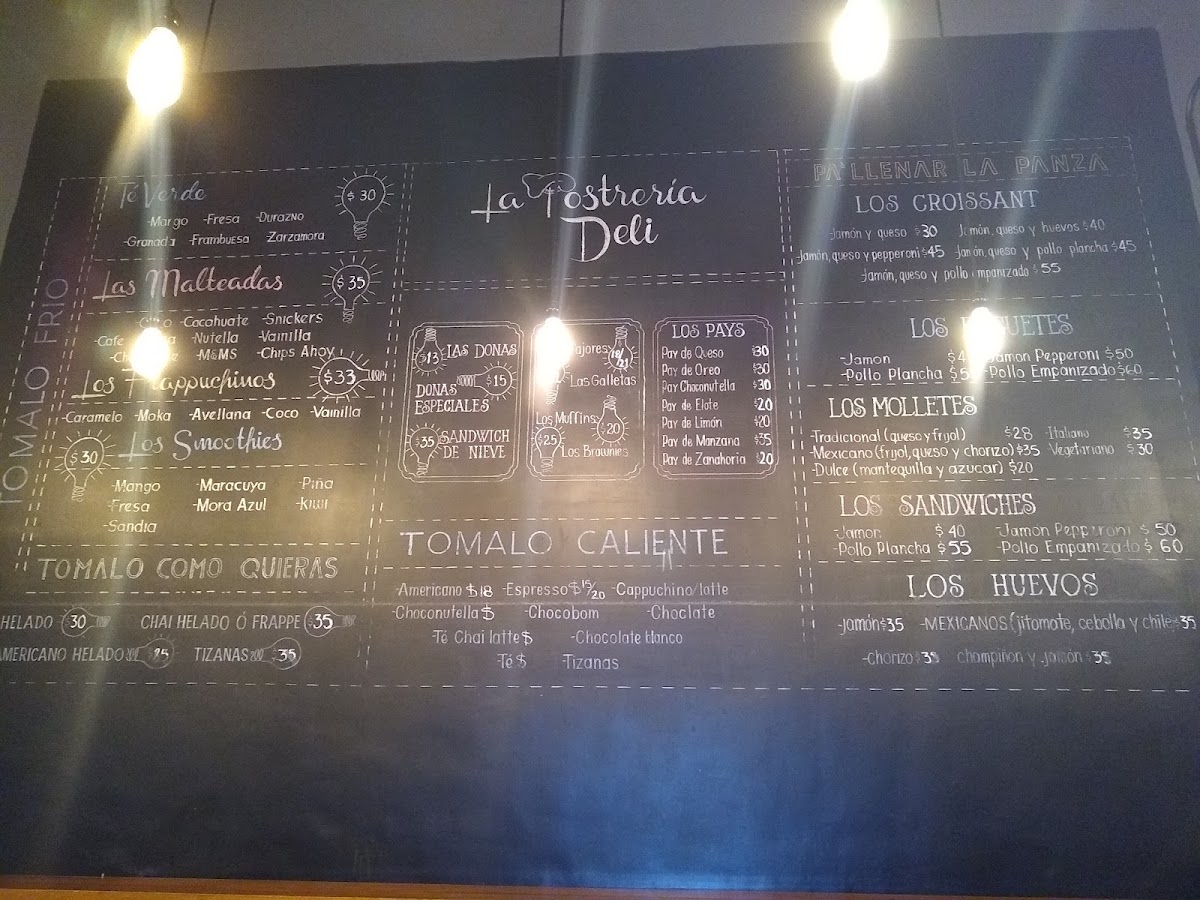 TOMALO FRIO
Té Verde
$30
-Mango -Fresa -Durazno
-Granada -Frambuesa Zarzamora
Las Malteadas
$35
-Cacahuate -Snickers
-Cafe -Nutella -Vainilla
-M&MS -Chips Ahoy
Los Frappuchinos
$33
-Caramelo -Moka -Avellana -Coco Vainilla
Los Smoothies
$30
-Mango -Maracuya -Piña
-Fresa -Mora Azul -Kiwi
-Sandia
TOMALO COMO QUIERAS
HELADO $30 CHAI HELADO Ó FRAPPE $35
AMERICANO HELADO $25 TIZANAS $35
La Postrería
Deli
$13 LAS DONAS
DONAS $15
ESPECIALES
$35 SANDWICH
DE NIEVE
18/21
Las Galletas
Los Muffins $20
$25 Los Brawnies
LOS PAYS
Pay de Queso $30
Pay de Oreo $30
Pay Choconutella $30
Pay de Elote $20
Pay de Limón $20
Pay de Manzana $35
Pay de Zanahoria $20
TOMALO CALIENTE
-Americano $18 -Espresso $15/20 -Cappuchino/latte
-Choconutella $ -Chocobom -Choclate
Té Chai latte $ -Chocolate blanco
-Té $ -Tizanas
PA'LLENAR LA PANZA
LOS CROISSANT
Jamón y queso $30 Jamón, queso y huevos $40
Jamón, queso y pepperoni $45 Jamón, queso y pollo plancha $45
Jamón, queso y pollo empanizado $55
LOS
-Jamon Jamon Pepperoni $50
-Pollo Plancha -Pollo Empanizado $60
LOS MOLLETES
-Tradicional (queso y frijol) $28 -Italiano $35
-Mexicano (frijol, queso y chorizo) $35 -Vegetariano $30
-Dulce (mantequilla y azucar) $20
LOS SANDWICHES
-Jamon $40 -Jamon Pepperoni $50
-Pollo Plancha $55 -Pollo Empanizado $60
LOS HUEVOS
-jamón $35 -MEXICANOS (jitomate, cebolla y chile $35
-Chorizo $35 champiñon y jamón $35